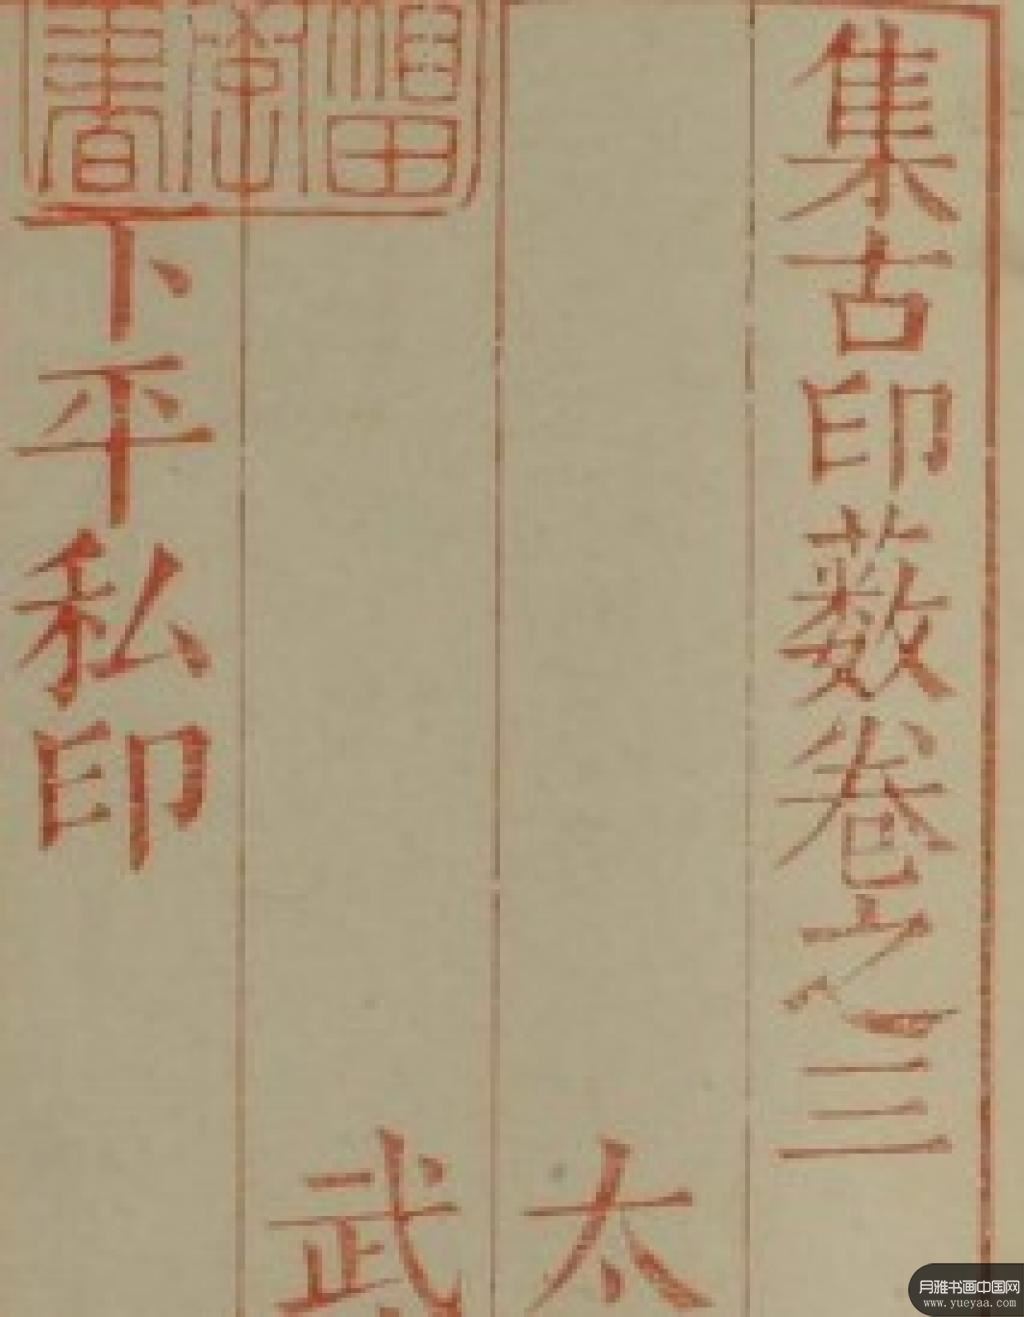 集古印藪卷之三
太
武
下平私印
月雅书画中国网
www.yueyaa.com